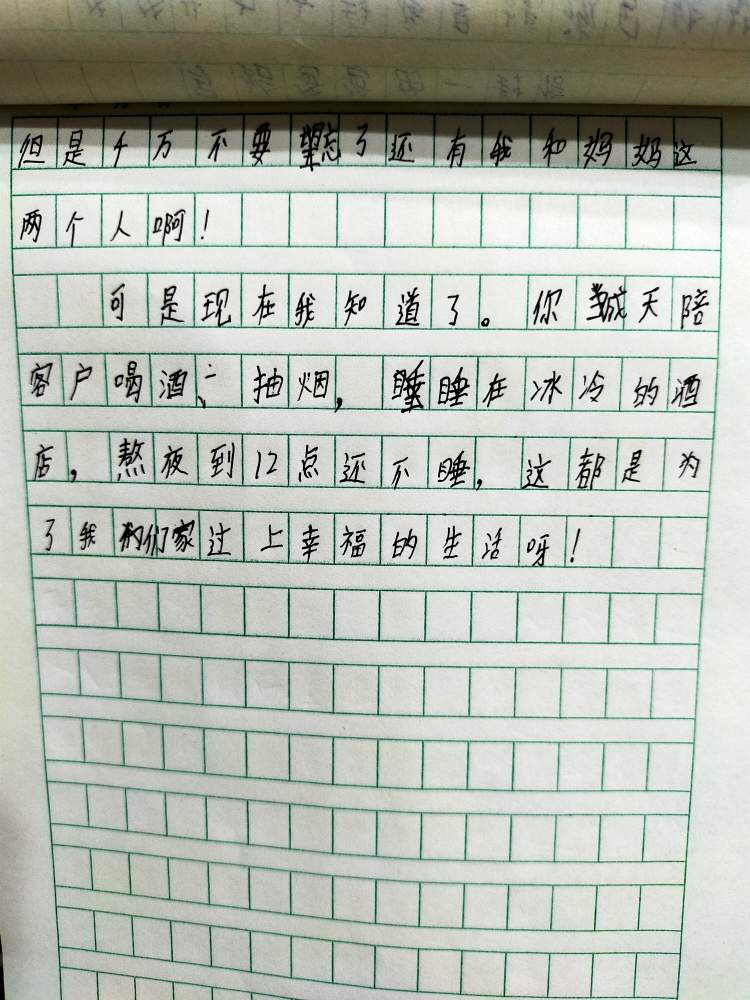 但是千万不要忘了还有我和妈妈这
两个人啊！
可是现在我知道了。你成天陪
客户喝酒、抽烟，睡在冰冷的酒
店，熬夜到12点还不睡，这都是为
了我们家过上幸福的生活呀！